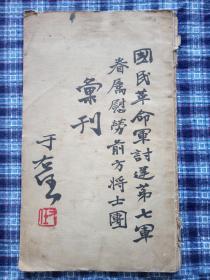 國民革命軍討逆第七軍
眷屬慰勞前方將士團
彙刊
于右任